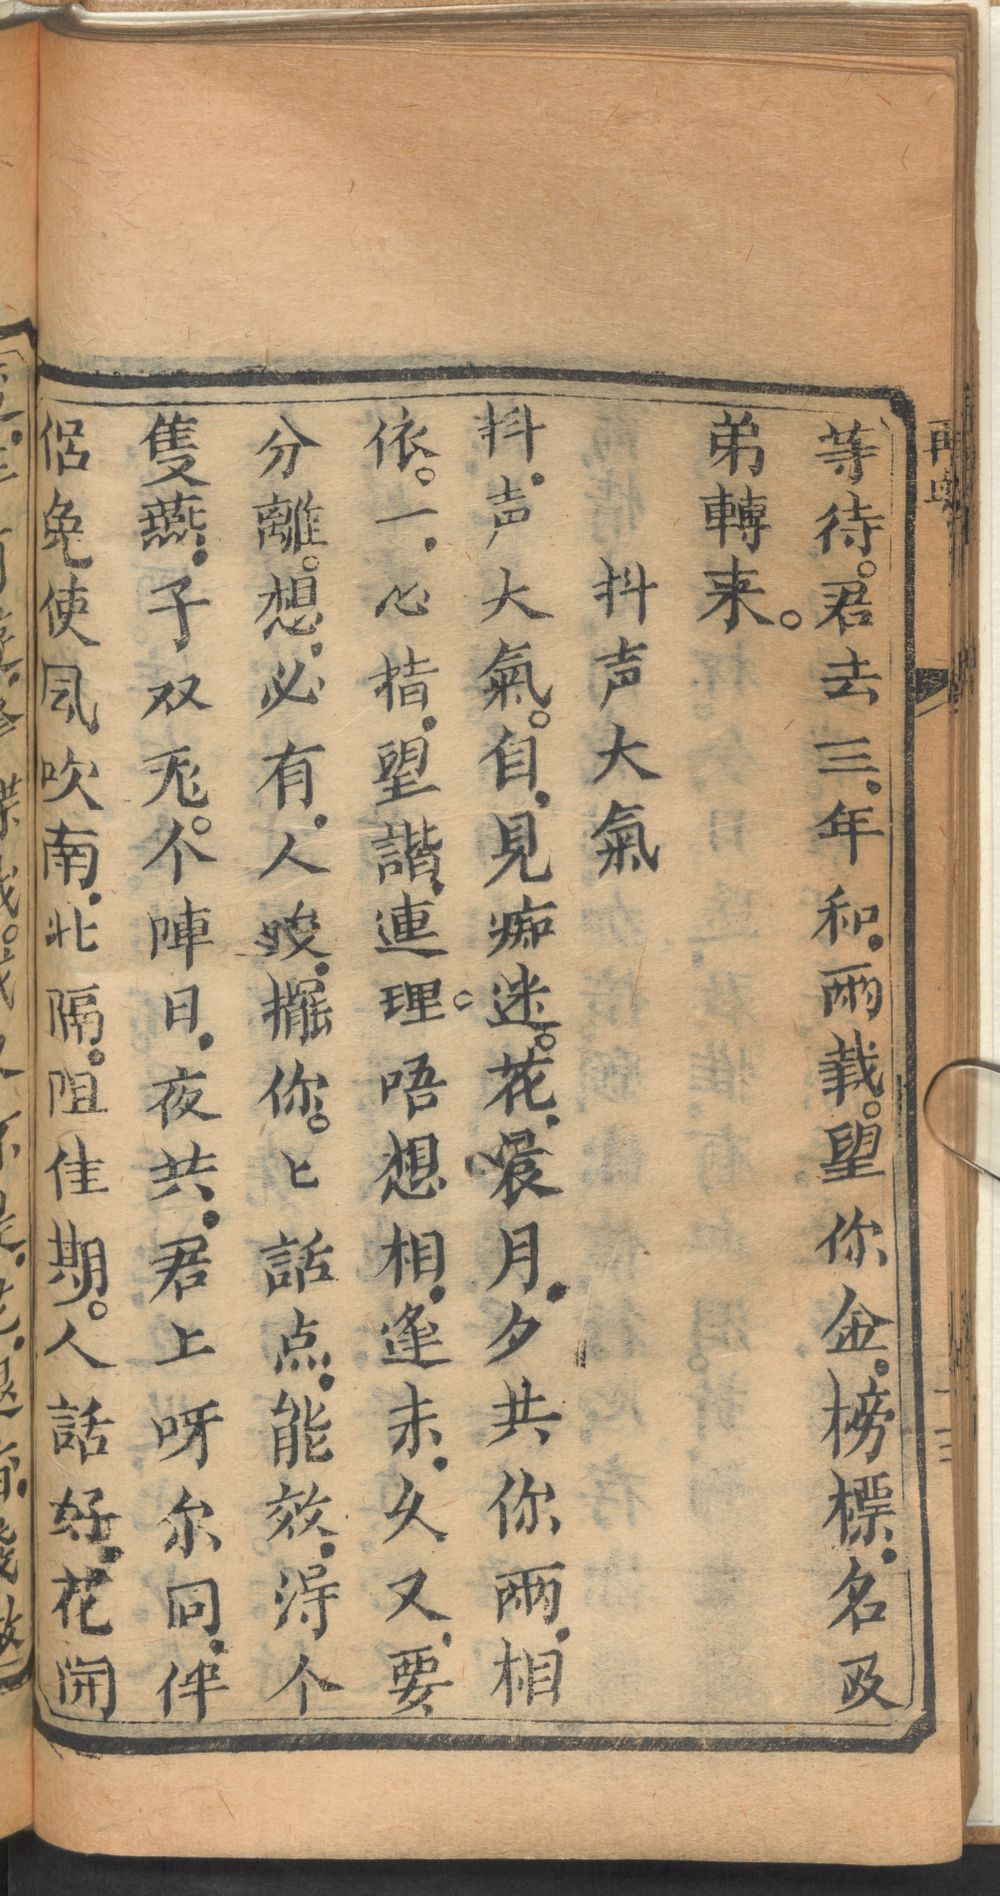 等待。君去三.年和.兩載。望你金.榜標.名及
弟轉来。
抖声大氣
抖.声大氣。自.見痴迷。花.晨月.夕共你兩.相
依。一.心指.望諧.連理。唔想相.逢未.久又.要
分離。想.必有.人唆.擺你。匕話点.能效.得个
隻燕.子双飛。个陣日.夜共.君上呀尔同.伴
侶免使風吹南.北隔.阻佳期。人話好.花開
再粤
十三